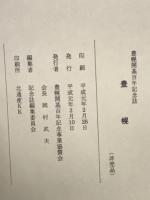 豊幌開基百年記念誌
豊幌
(非売品)
印刷 平成元年2月28日
発行 平成元年3月10日
発行者 豊幌開基百年記念事業協賛会
会長 岡村武夫
編集者 記念誌編集委員会
印刷所 北進産KK